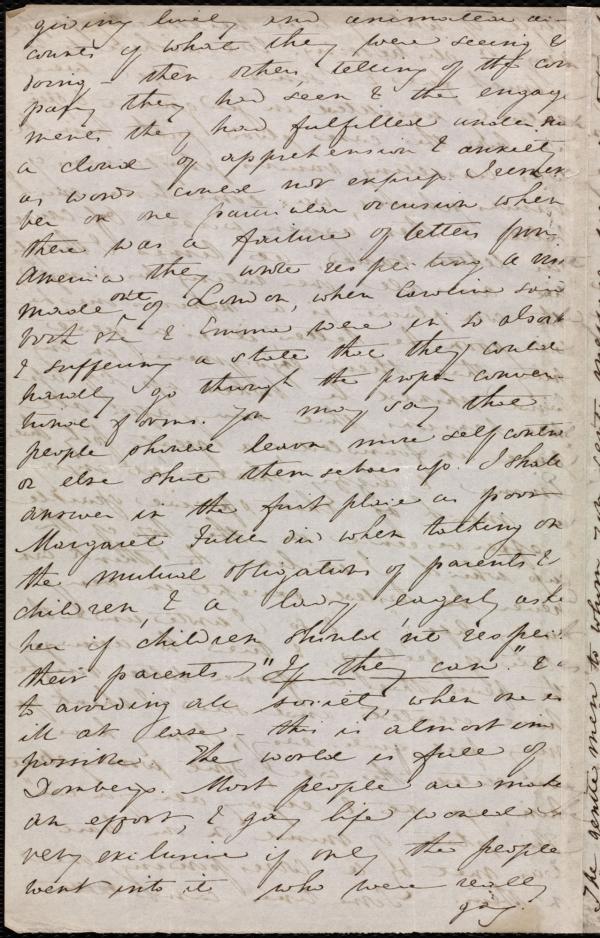 giving lively and animated ac-
counts of what they were seeing &
doing - then others telling of the com
pany they had seen & the engage
ments they had fulfilled under
a cloud of apprehension & anxiety
as words could not express. I remem
ber on one particular occasion when
there was a failure of letters from
America they wrote respecting a
made out of London, when Caroline said
both she & Emma were in so
& suffering a state that they could
hardly go through the proper conven
tional forms. You may say that
people should learn more self control
or else shut themselves up. I shall
answer in the first place as poor
Margaret Fuller did when talking on
the mutual obligations of parents &
children, & a lady eagerly asked
her if children should n't respect
their parents "If they can." &
to avoiding all society, when one is
ill at ease - this is almost im
possible. The world is full of
Dombeys. Most people can make
an effort, & gay life would
very exclusive if only the people
went into it who were really
gay.
The gentle men to whom you sent